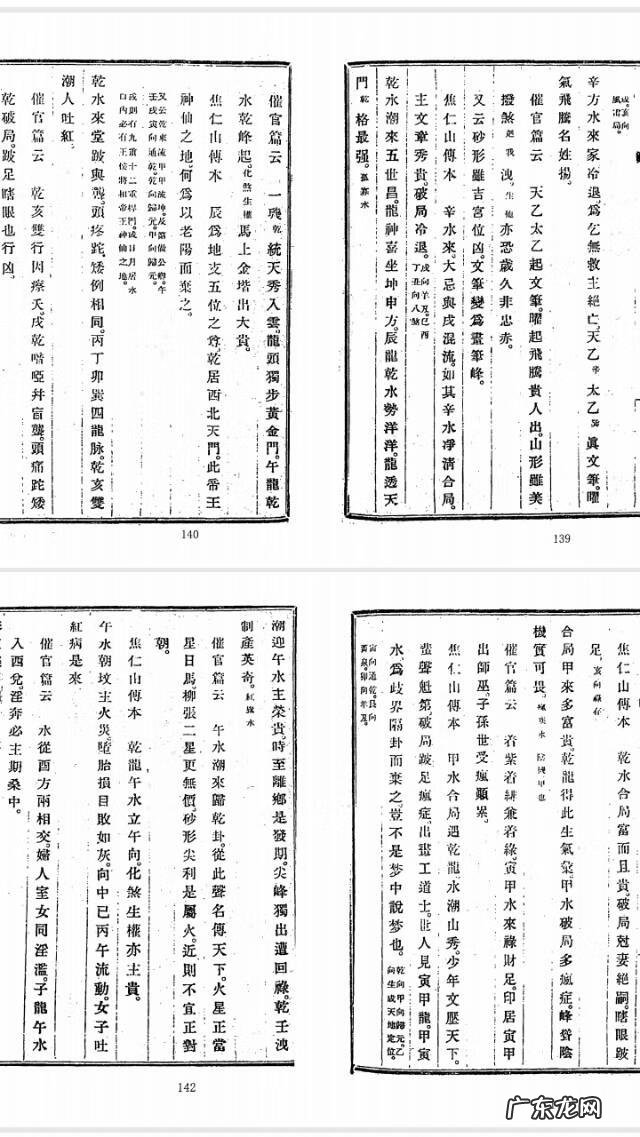 辛方水來家冷退。爲乞無救主絕亡。天乙太乙眞文筆。曜
氣飛騰名姓揚。
催官篇云 天乙太乙起文筆。曜起飛騰貴人出。山形雖美
撥煞 洩。亦恐歲久非忠赤。
又云砂形雖吉宮位凶。文筆變爲畫筆峰。
焦仁山傳本 辛水來。大忌與戌混流。如其辛水凈淸合局。
主文章秀貴。破局冷退。
乾水潮來五世昌。龍神喜坐坤申方。辰龍乾水勢洋洋。龍透天
門乾格最强。
139
催官篇云 一璣乾統天秀入雲。龍頭獨步黃金門。午龍乾
水乾峰起。化煞生權馬上金堦出大貴。
焦仁山傳本 辰爲地支五位之尊。乾居西北天門。此帝王
神仙之地。何爲以老陽而棄之。
乾水來堂跛與聾。頭疼跎矮例相同。丙丁卯巽四龍脉。乾亥雙
潮人吐紅。
催官篇云 乾亥雙行因瘵夭。戌乾喑啞幷盲聾。頭痛跎矮
乾破局。跛足瞎眼也行凶。
140
焦仁山傳本 乾水合局富而且貴。破局尅妻絕嗣。瞎眼跛
足。
合局甲來多富貴。乾龍得此生氣彙。甲水破局多瘋症。峰昏陰
機實可畏。
催官篇云 若紫着緋兼着綠。寅甲水來祿財足。印居寅甲
出師巫。子孫世受瘋顚累。
焦仁山傳本 甲水合局遇乾龍水潮山秀。少年文壓天下。
蜚聲魁第。破局跛足瘋症。出畫工道士。世人見寅甲龍。甲寅
水。爲歧界隔卦而棄之。豈不是梦中說梦也。
潮迎午水主榮貴。時至離鄉是發期。尖峰獨出遭回祿。乾壬洩
制產英奇。
催官篇云 午水潮來歸乾卦。從此聲名傳天下。火星正當
星日馬。柳張二星更無價。砂形尖利是屬火。近則不宜正對
朝。
焦仁山傳本 乾龍午水立午向。化煞生權亦主貴。
午水朝墳主火災。墮胎損目敗如灰。向中巳丙午流動。女子吐
紅病是來。
催官篇云 水從酉方兩相交。婦人室女同淫濫。子龍午水
入西兌。淫奔必主期桑中。
142
广东龙网